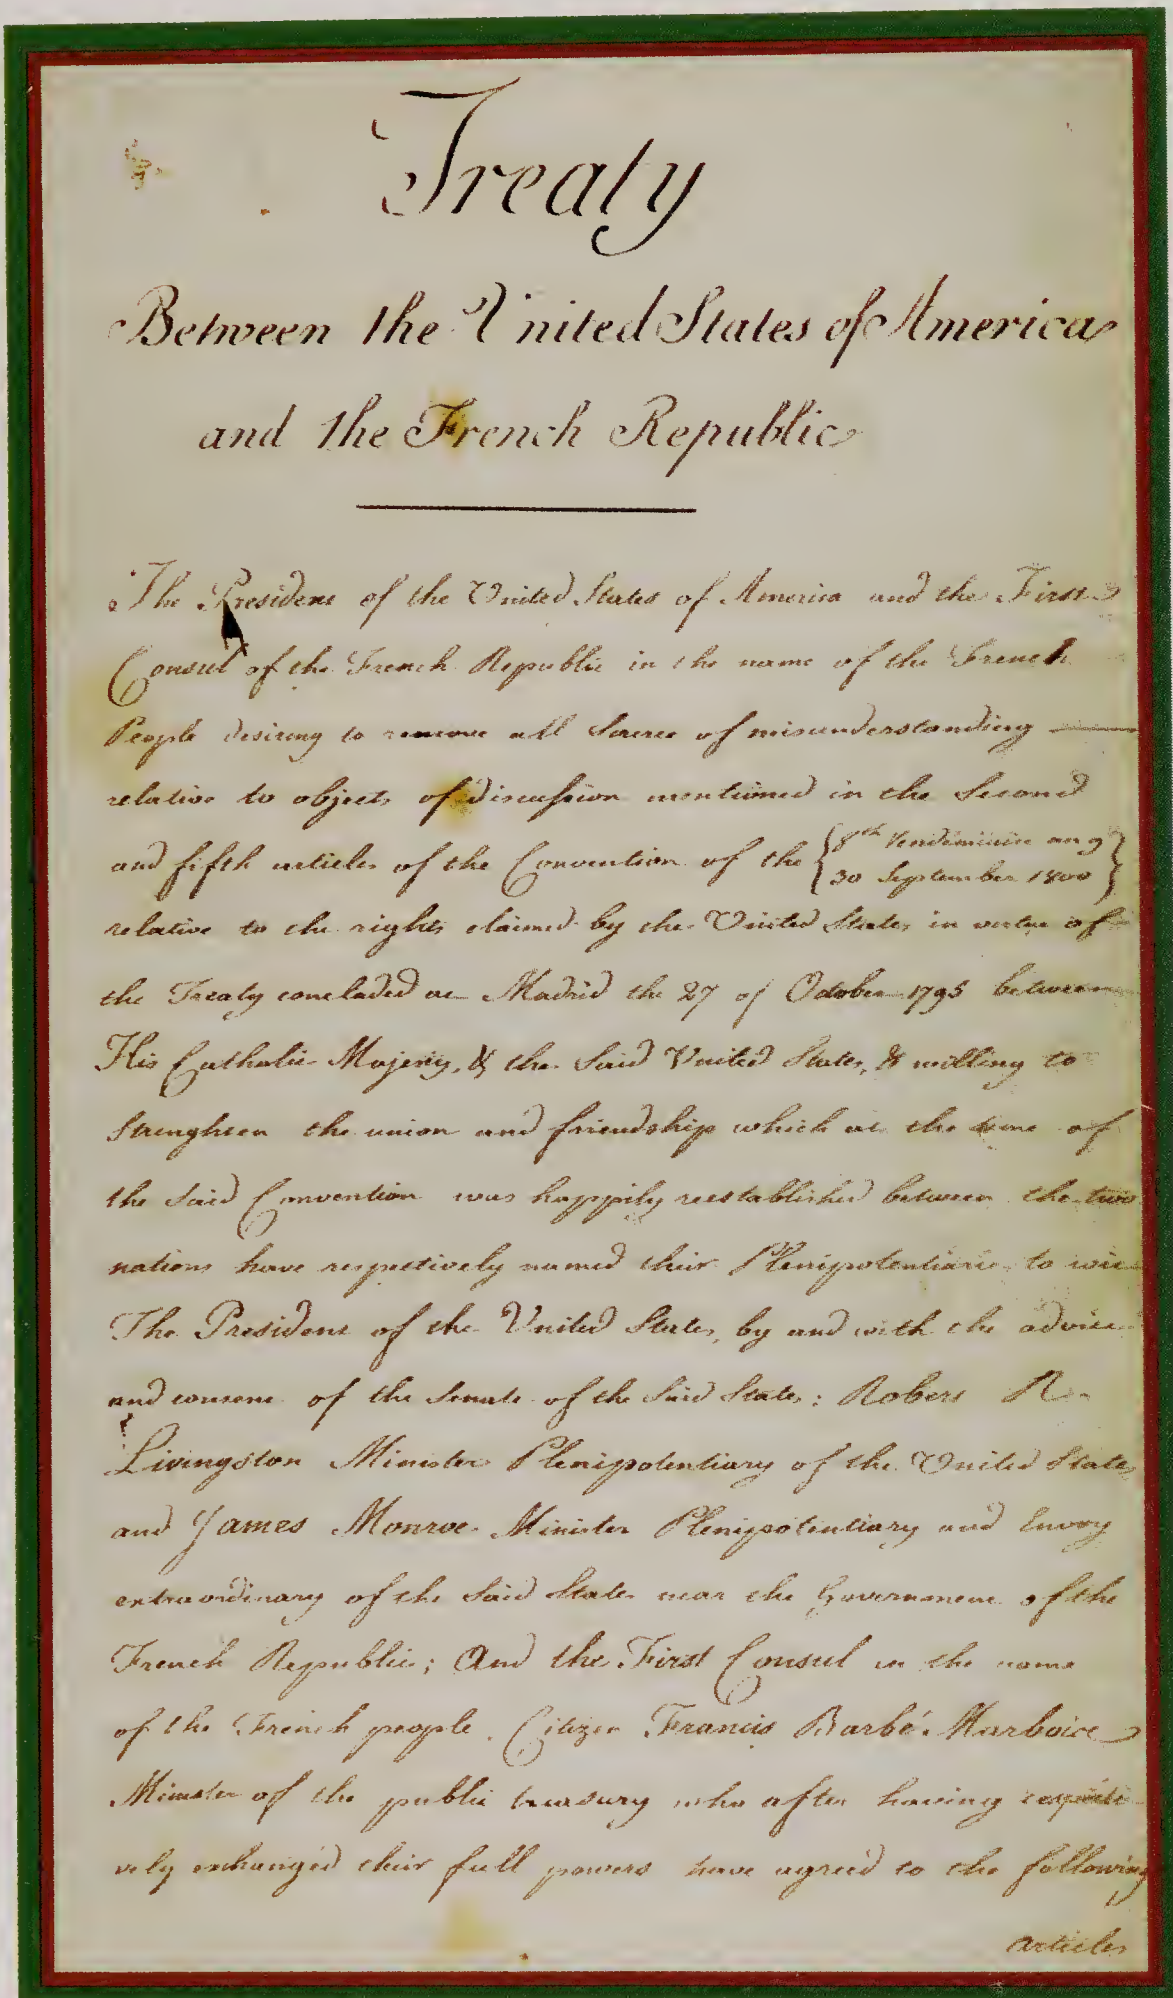 Treaty
Between the United States of America
and the French Republic
The President of the United States of America and the First
Consul of the French Republic in the name of the French
People desiring to remove all Source of misunderstanding
relative to objects of discussion mentioned in the Second
and fifth articles of the Convention of the {8th Vendémiaire an 9
30 September 1800}
relative to the rights claimed by the United States in virtue of
the Treaty concluded at Madrid the 27 of October 1795 between
His Catholic Majesty, & the Said United States, & willing to
Strenghten the union and friendship which at the time of
the Said Convention was happily reestablished between the two
nations have respectively named their Plenipotentiaries to wit
The President of the United States, by and with the advice
and consent of the Senate of the Said States; Robert R.
Livingston Minister Plenipotentiary of the United States
and James Monroe Minister Plenipotentiary and Envoy
extraordinary of the Said States near the Government of the
French Republic; And the First Consul in the name
of the French people, Citizen Francis Barbé Marbois
Minister of the public treasury who after having respecti
vely exchanged their full powers have agreed to the following
articles